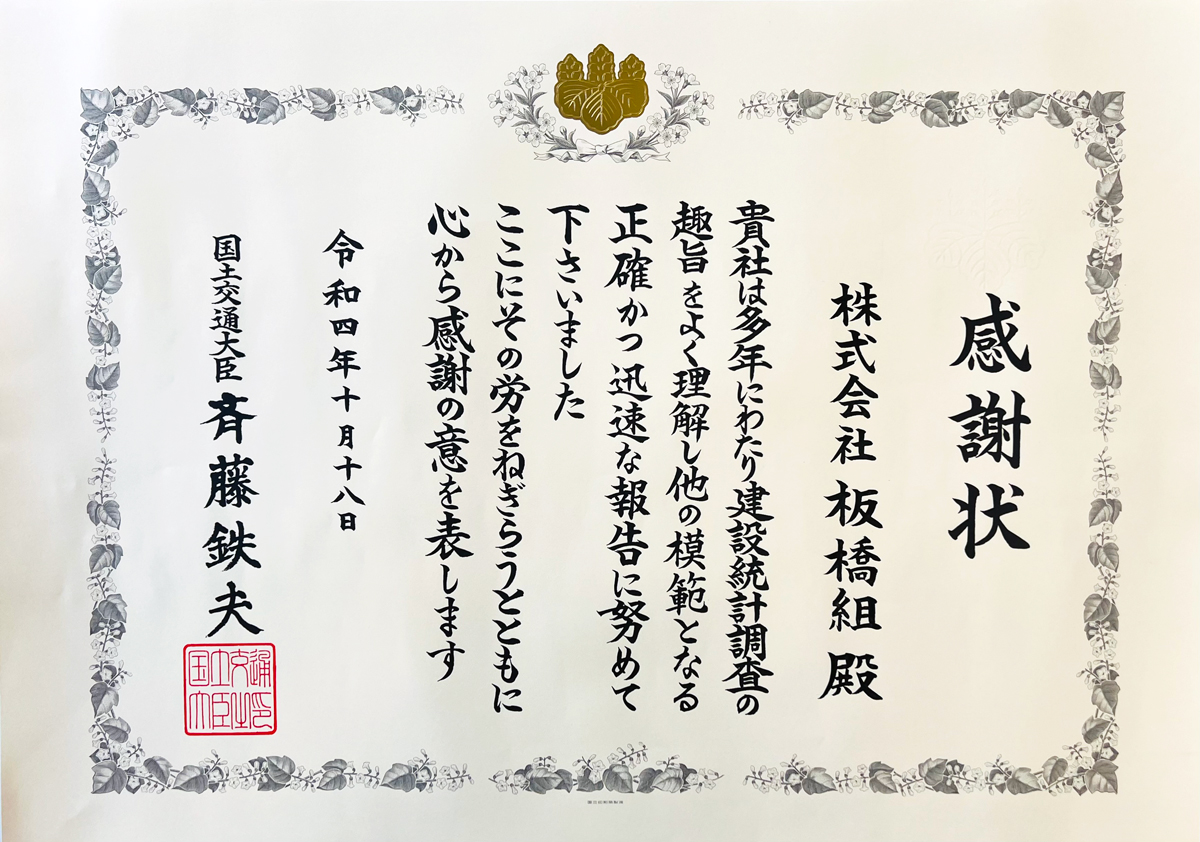 感謝状
株式会社 板橋組 殿
貴社は多年にわたり建設統計調査の
趣旨をよく理解し他の模範となる
正確かつ迅速な報告に努めて
下さいました
ここにその労をねぎらうとともに
心から感謝の意を表します
令和四年十月十八日
国土交通大臣 斉藤鉄夫